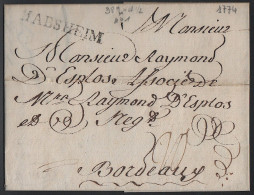 HABSHEIM
1774
Monsieur
Monsieur Raymond
D'Esplos Associé de
Mrs Raymond D'Esplos
Neg.ts
Bordeaux